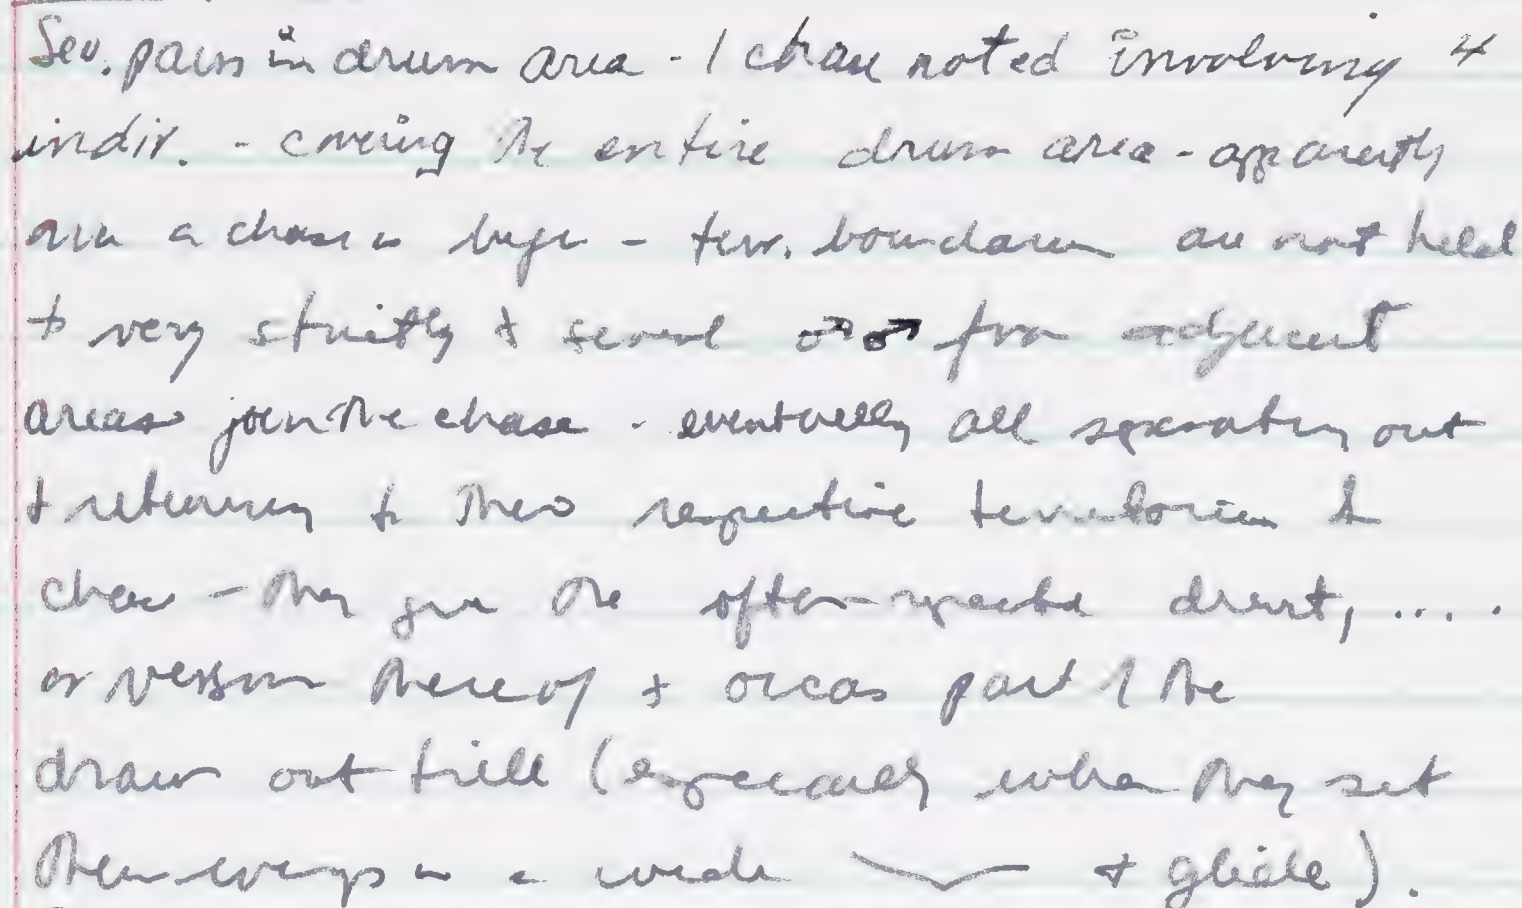 Sev. pairs in drum area - 1 chase noted involving 4
indiv. - covering the entire drum area - apparently
once a chase is begun - terr. boundaries are not held
to very strictly & several ♂♂ from adjacent
areas join the chase - eventually all separating out
& returning to their respective territories &
chase - they give the often-repeated dreurt, ....
or version thereof & occas part of the
drawn out trill (especially when they set
their wings in a wide & glide).